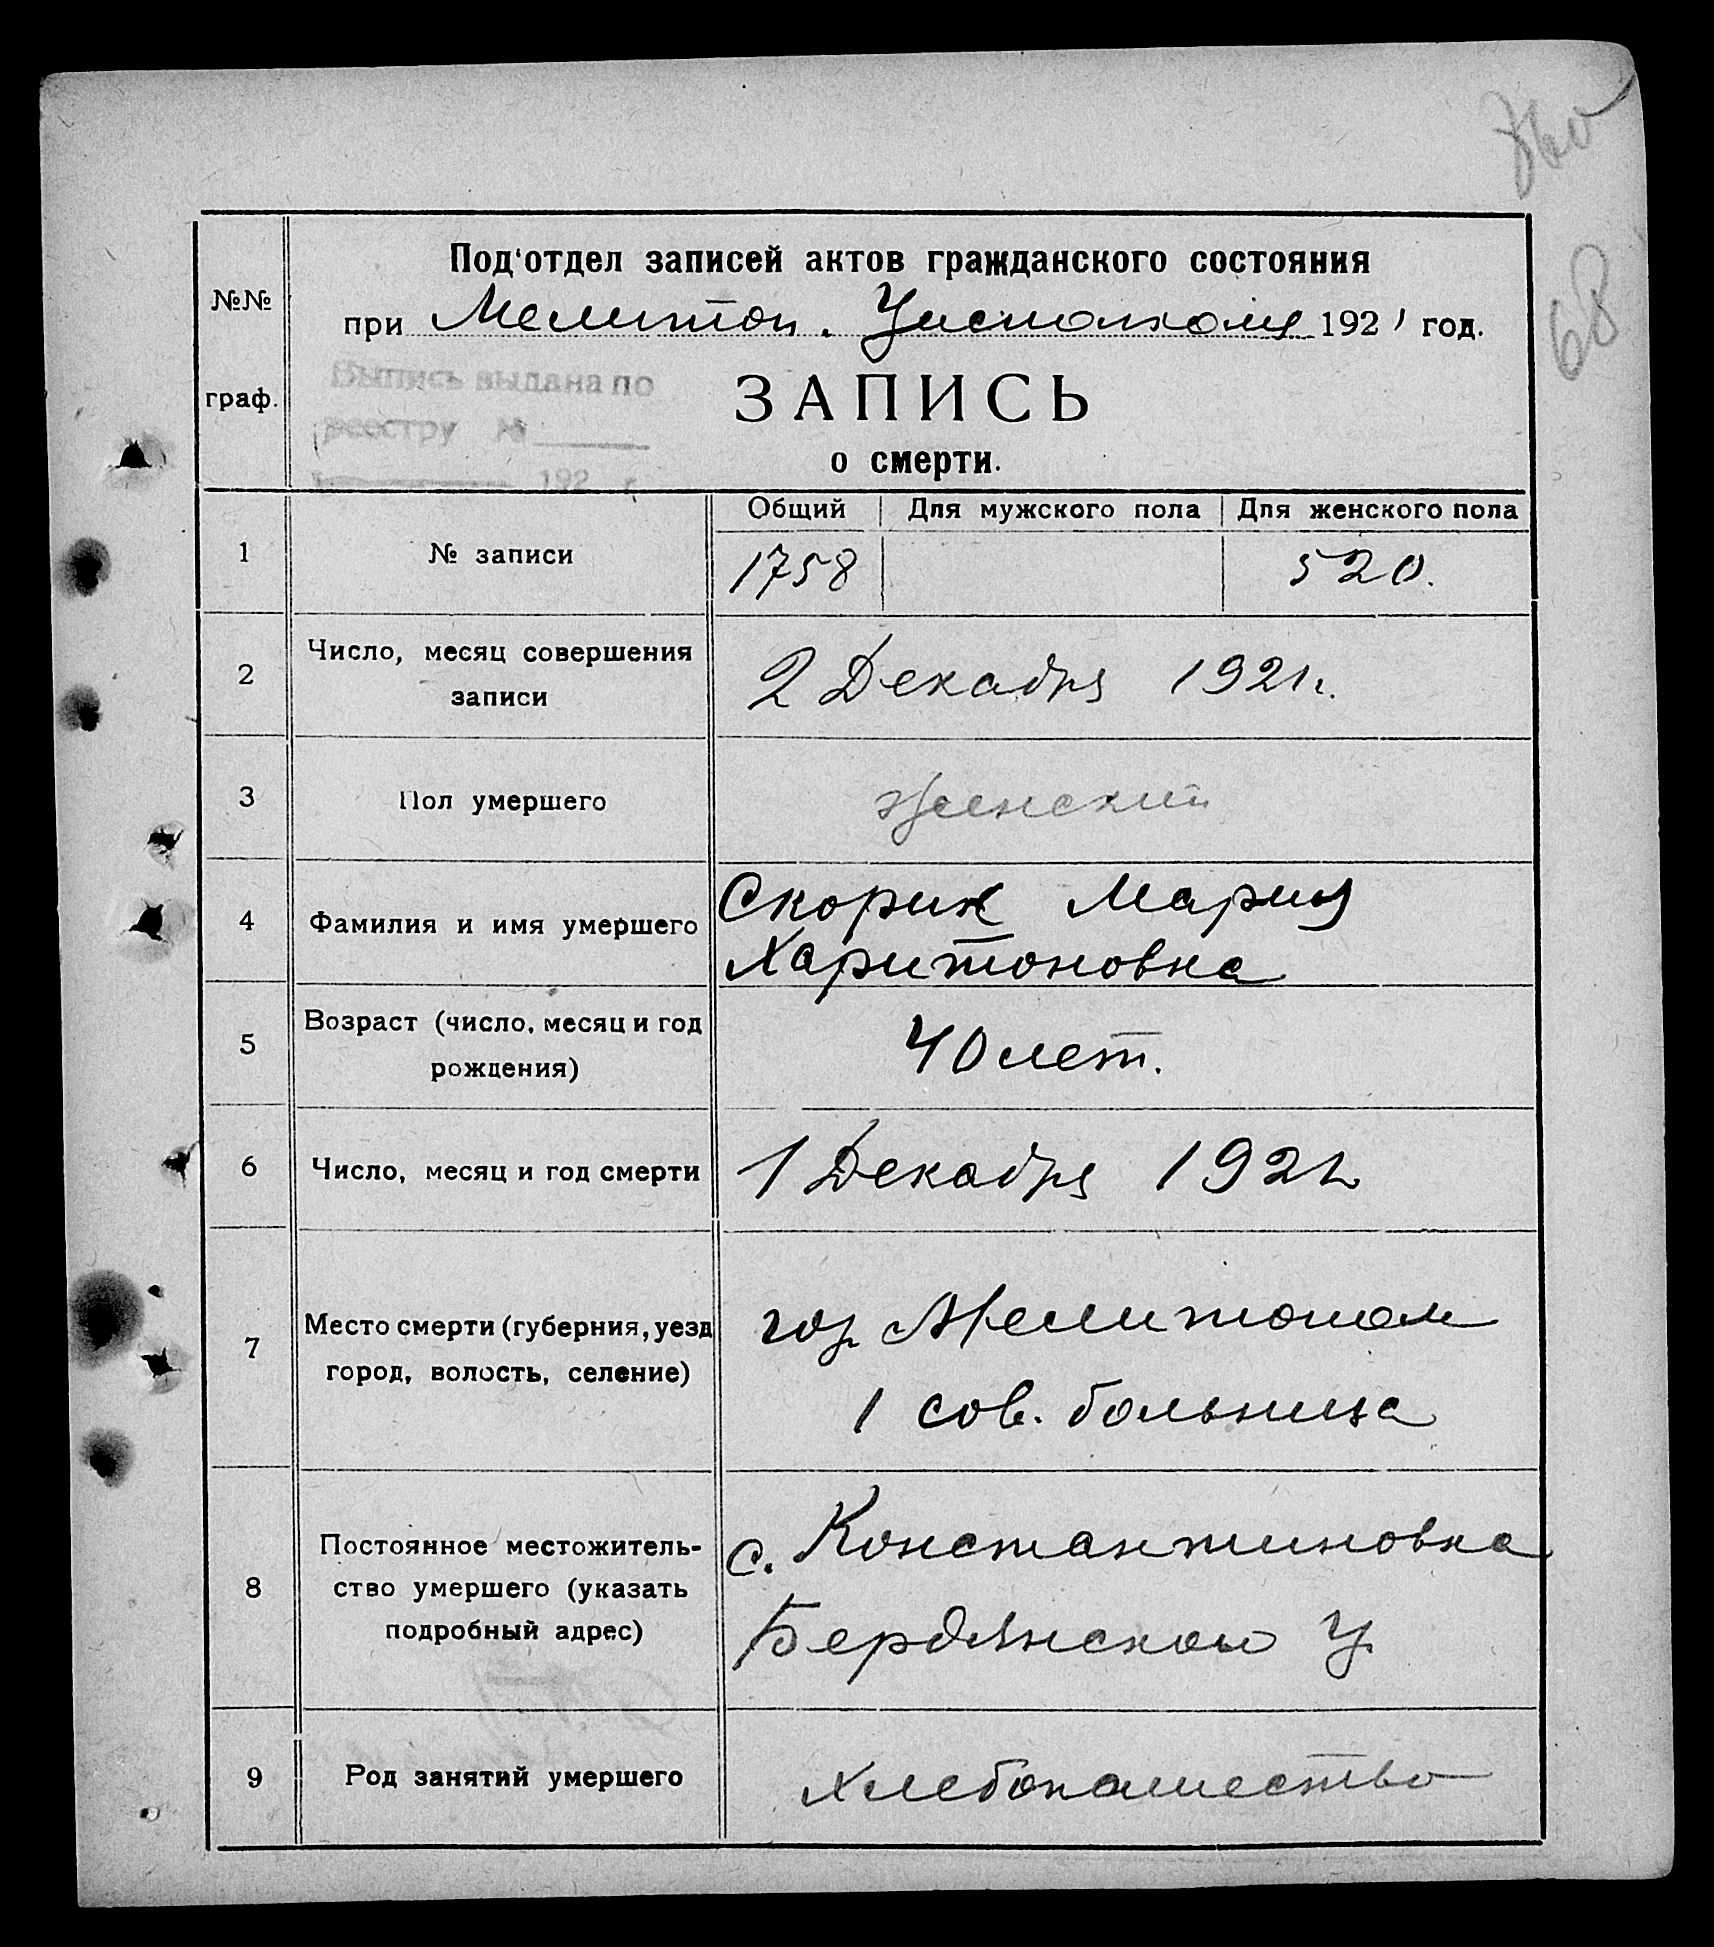 68
№№
граф.
Под'отдел записей актов гражданского состояния
при Мелитоп. Уисполкоме 1921 год.
Выпись выдана по
реестру №
192 г.
ЗАПИСЬ
о смерти.
Общий Для мужского пола Для женского пола
1 № записи 1758 520.
2 Число, месяц совершения
записи
2 Декабря 1921 г.
3 Пол умершего женский
4 Фамилия и имя умершего
Скорик Мария
Харитоновна
5 Возраст (число, месяц и год
рождения)
40 лет.
6 Число, месяц и год смерти 1 Декабря 1921
7 Место смерти (губерния, уезд
город, волость, селение)
гор Мелитополь
1 сов. больница
8 Постоянное местожитель-
ство умершего (указать
подробный адрес)
с. Константиновка
Бердянского У.
9 Род занятий умершего хлебопашество